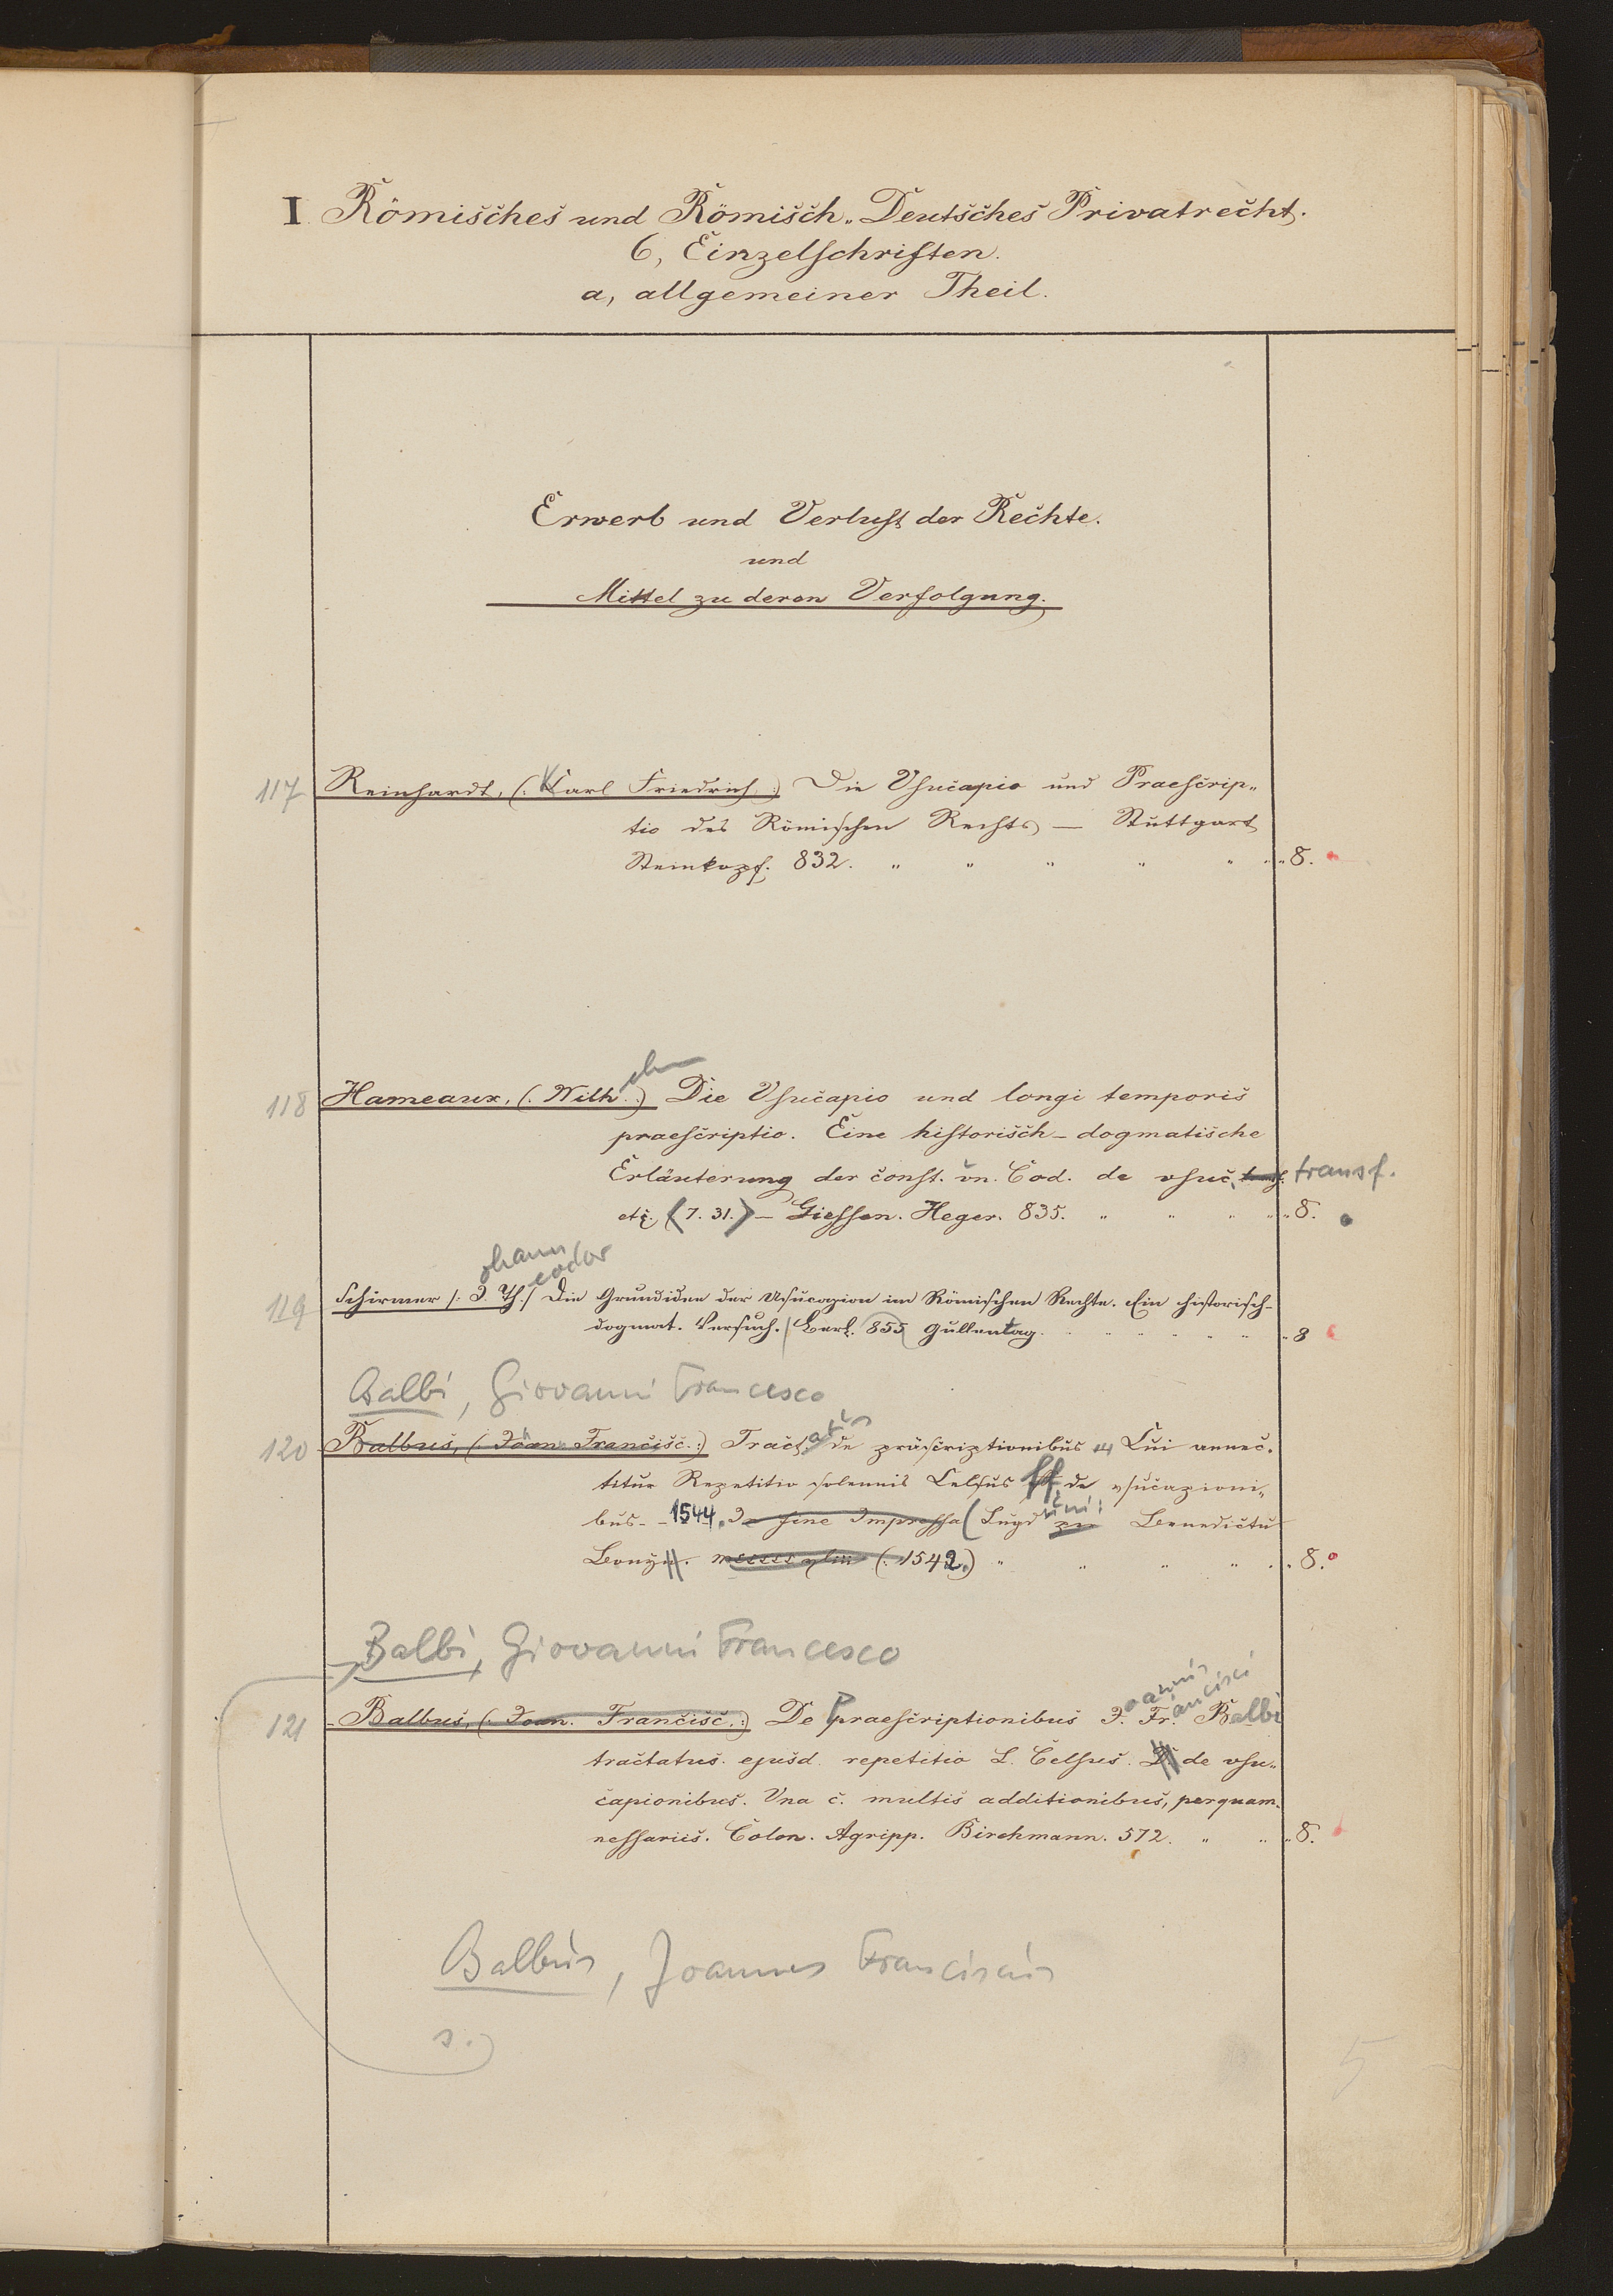 I. Römisches und Römisch-Deutsches Privatrecht.
6, Einzelschriften.
a, allgemeiner Theil.
Erwerb und Verlust der Rechte.
und
Mittel zu deren Verfolgung.
117 Reinhardt, (: Karl Friedrich :) Die Usucapio und Praescrip-
tio des Römischen Rechts, — Stuttgart
Steinkopf. 832. " " " " " " 8.
ehm
118 Hameaux, (: Wilh. :) Die Usucapio und longi temporis
praescriptio. Eine historisch-dogmatische
Erläuterung der const. un. Cod. de usuc. transf.
etc. (7. 31.) — Giessen. Heger. 835. " " " " 8.
ohann eodor
119 Schirmer /: J. Th. :/ Die Grundidee der Usucapion im Römischen Rechte. Ein historisch-
dogmat. Versuch. / Berl. 855 Guttentag. " " " " 8
Balbi, Giovanni Francesco
120 Balbus, (: Joan. Francisc. :) Tractatus de präscriptionibus Cui annec-
titur Repetitio solennis Celsus ff. de usucapioni-
bus - 1544. In fine Impressa (Lugduni: Benedictu
Bonyn. mccccxlii (: 1542.) " " " " 8.
Balbi, Giovanni Francesco
oannis ancisci
121 Balbus, (: Joan. Francisc. :) De Praescriptionibus J. Fr. Balbi
tractatus. ejusd. repetitio L. Celsus. D. de usu-
capionibus. Una c. multis additionibus, perquam
nessariis. Colon. Agripp. Birckmann. 572. " " 8.
Balbus, Joannes Franciscus
s.
5